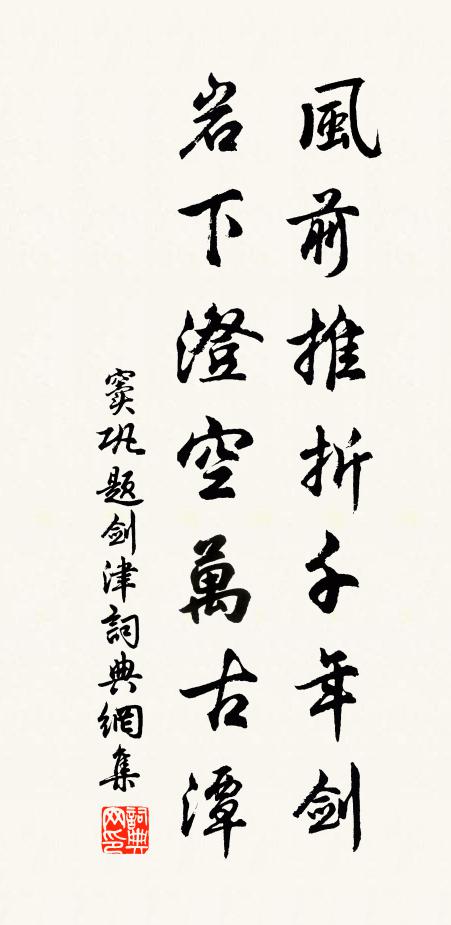 風前推折千年剑
岩下澄空萬古潭
窦巩题剑津詞典網集
詞典网印